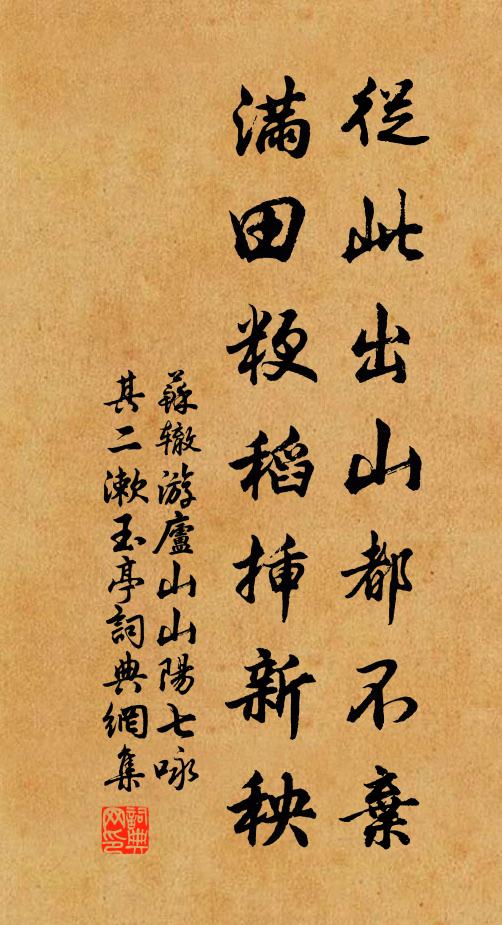 從此出山都不棄
滿田粳稻插新秧
蘇轍游廬山山陽七咏
其二漱玉亭詞典網集
詞典网印